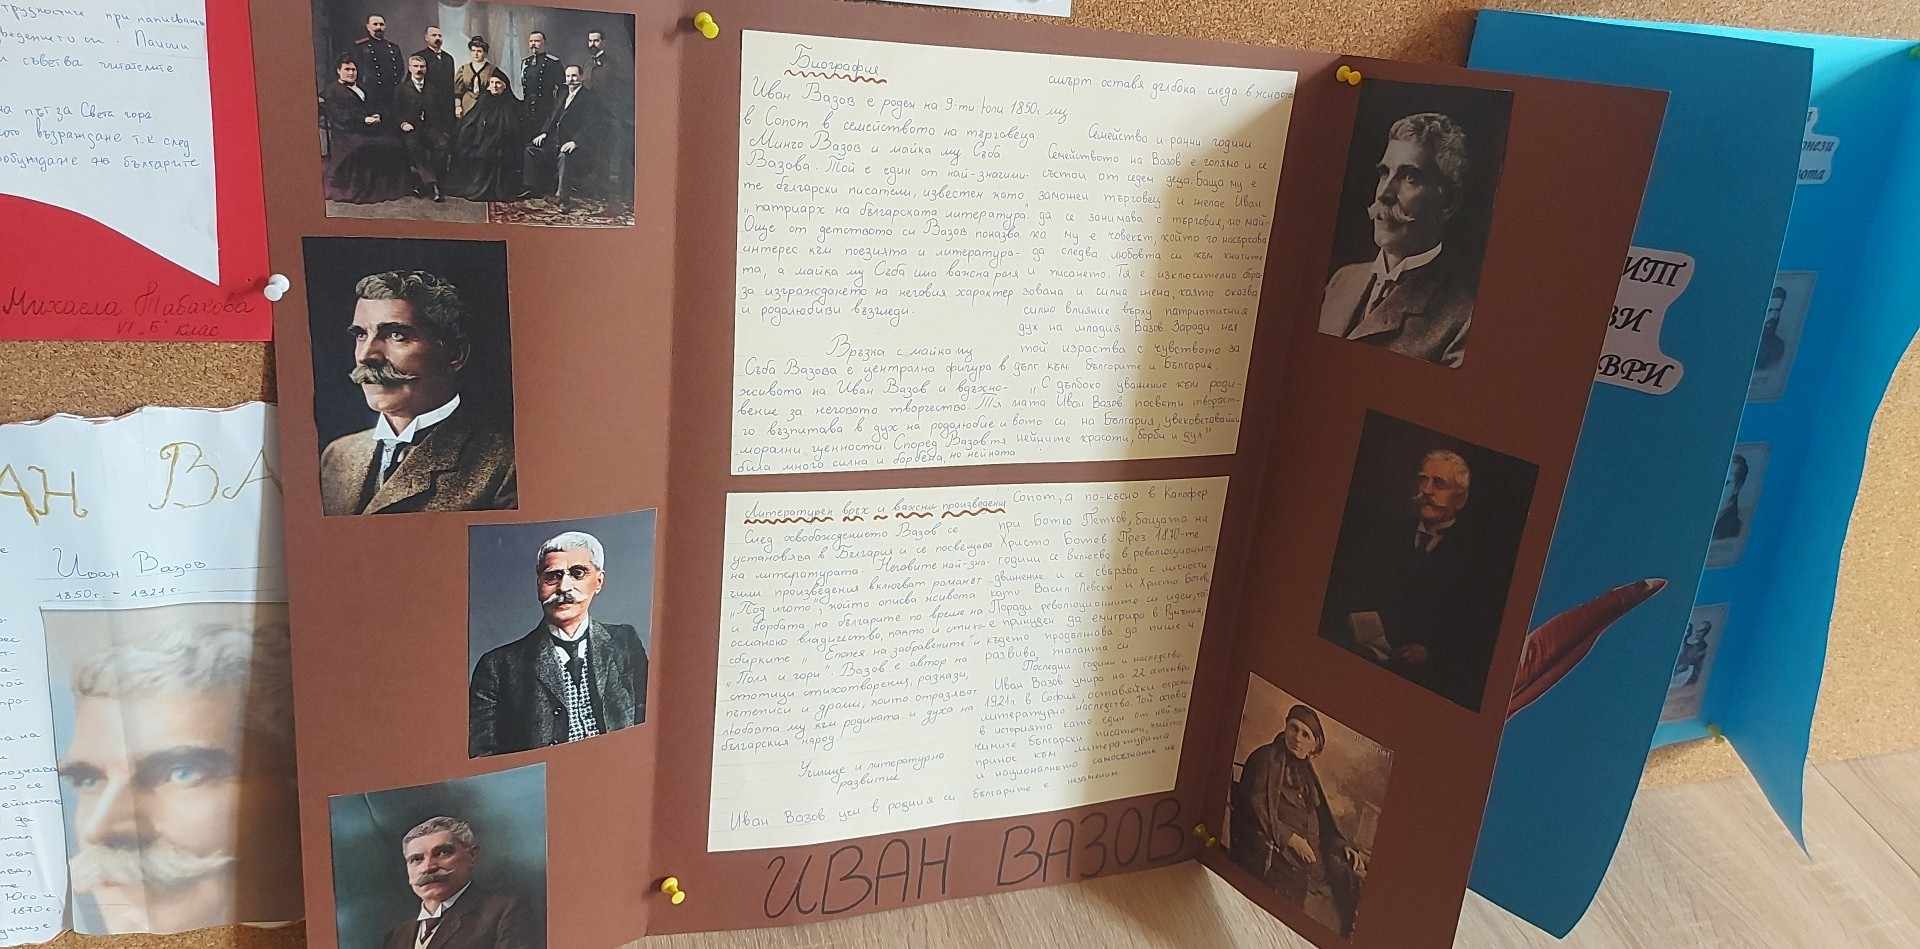 трудности при написване
съветва читателите
на път за Света гора
възраждане т.к след
българите
Михаела Табакова
VI „Б“ клас
АН ВА
Иван Вазов
1850г. - 1921г.
Биография
Иван Вазов е роден на 9-ти юли 1850г.
в Сопот в семейството на търговеца
Минчо Вазов и майка му Съба
Вазова. Той е един от най-значими-
те български писатели, известен като
„патриарх на българската литература.
Още от детството си Вазов показва
интерес към поезията и литература-
та, а майка му Съба има важна роля
за изграждането на неговия характер
и родолюбиви възгледи.
Връзка с майка му
Съба Вазова е централна фигура в
живота на Иван Вазов и вдъхно-
вение за неговото творчество. Тя
го възпитава в дух на родолюбие и
морални ценности. Според Вазов тя
била много силна и борбена, но нейната
смърт оставя дълбока следа в живота
му
Семейство и ранни години
Семейството на Вазов е голямо и се
състои от седем деца. Баща му е
заможен търговец и желае Иван
да се занимава с търговия, но май-
ка му е човекът, който го насърчава
да следва любовта си към книгите
и писането. Тя е изключително обра-
зована и силна жена, която оказва
силно влияние върху патриотичния
дух на младия Вазов. Заради нея
той израства с чувството за
дълг към българите и България.
„С дълбоко уважение към роди-
мата Иван Вазов посвети творчест-
вото си на България, увековечавайки
нейните красоти, борби и дух“
Литературен връх и важни произведения
След освобождението Вазов се
установява в България и се посвещава
на литературата. Неговите най-зна-
чими произведения включват романът
„Под игото“, който описва живота
и борбата на българите по време на
османско владичество, както и стихо-
сбирките „Епопея на забравените“ и
„Поля и гори“. Вазов е автор на
стотици стихотворения, разкази,
пътеписи и драми, които отразяват
любовта му към родината и духа на
българския народ.
Училище и литературно
развитие
Иван Вазов учи в родния си
Сопот, а по-късно в Калофер
при Ботьо Петков, бащата на
Христо Ботев. През 1870-те
години се включва в революционното
движение и се свързва с личности
като Васил Левски и Христо Ботев.
Поради революционните си идеи, той
е принуден да емигрира в Румъния,
където продължава да пише и
развива, таланта си
Последни години и наследство
Иван Вазов умира на 22 септември
1921г. в София, оставяйки огромно
литературно наследство. Той остава
в историята като един от най-вели-
чимите български писатели, чийто
принос към литературата
и националното самосъзнание на
българите е неизменим
ИВАН ВАЗОВ
ИТ
ЗИ
ВРИ